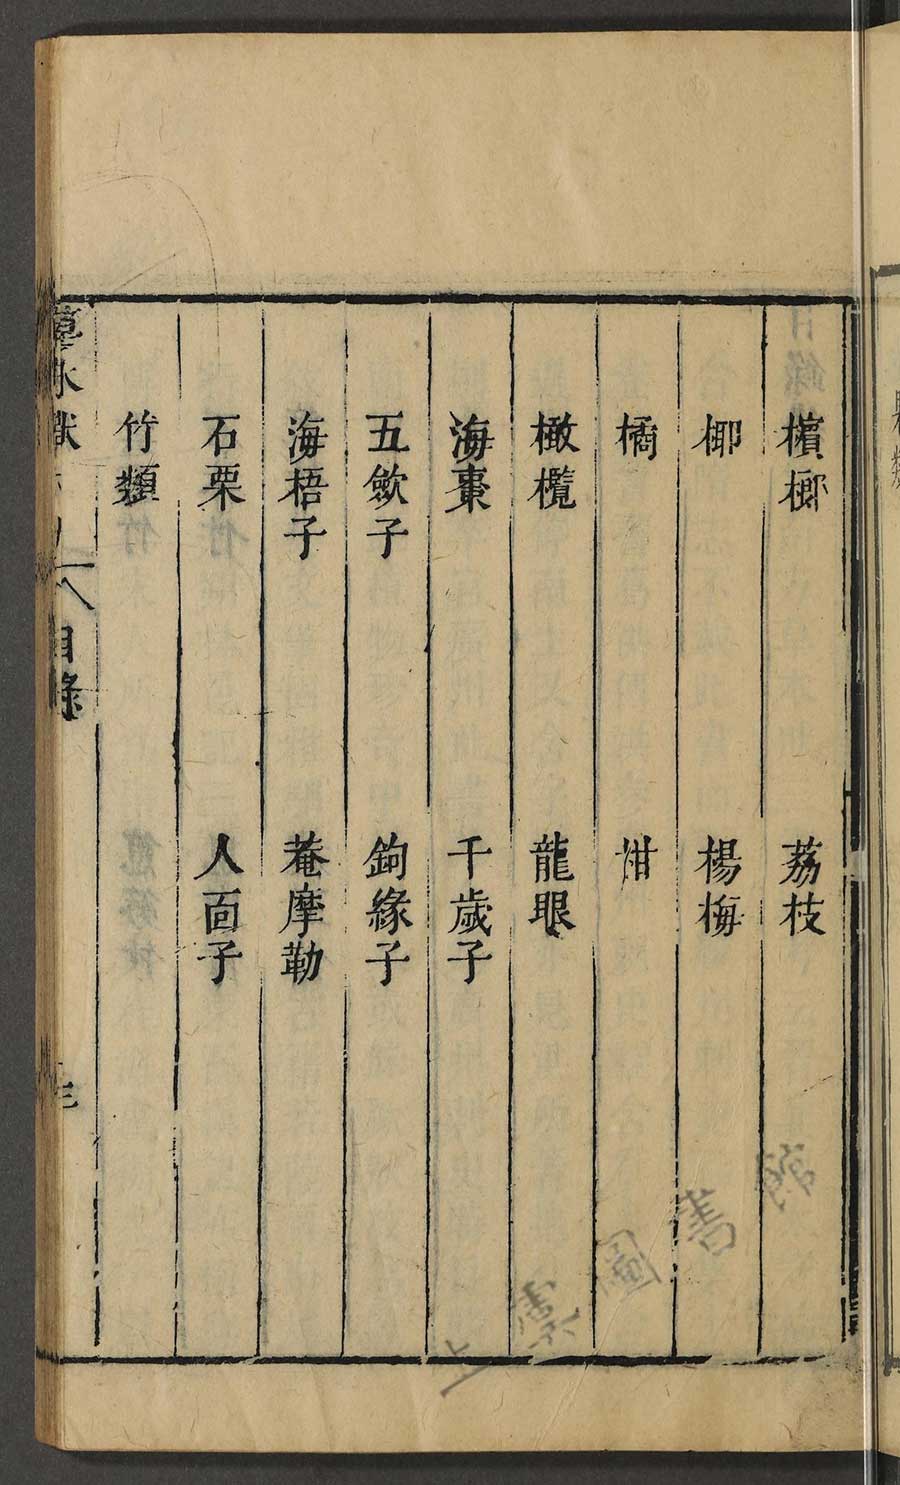 檳榔 荔枝
椰 楊梅
橘 柑
橄欖 龍眼
海棗 千歲子
五斂子 鉤緣子
海梧子 菴摩勒
石栗 人面子
竹類
目錄
上虞圖書館